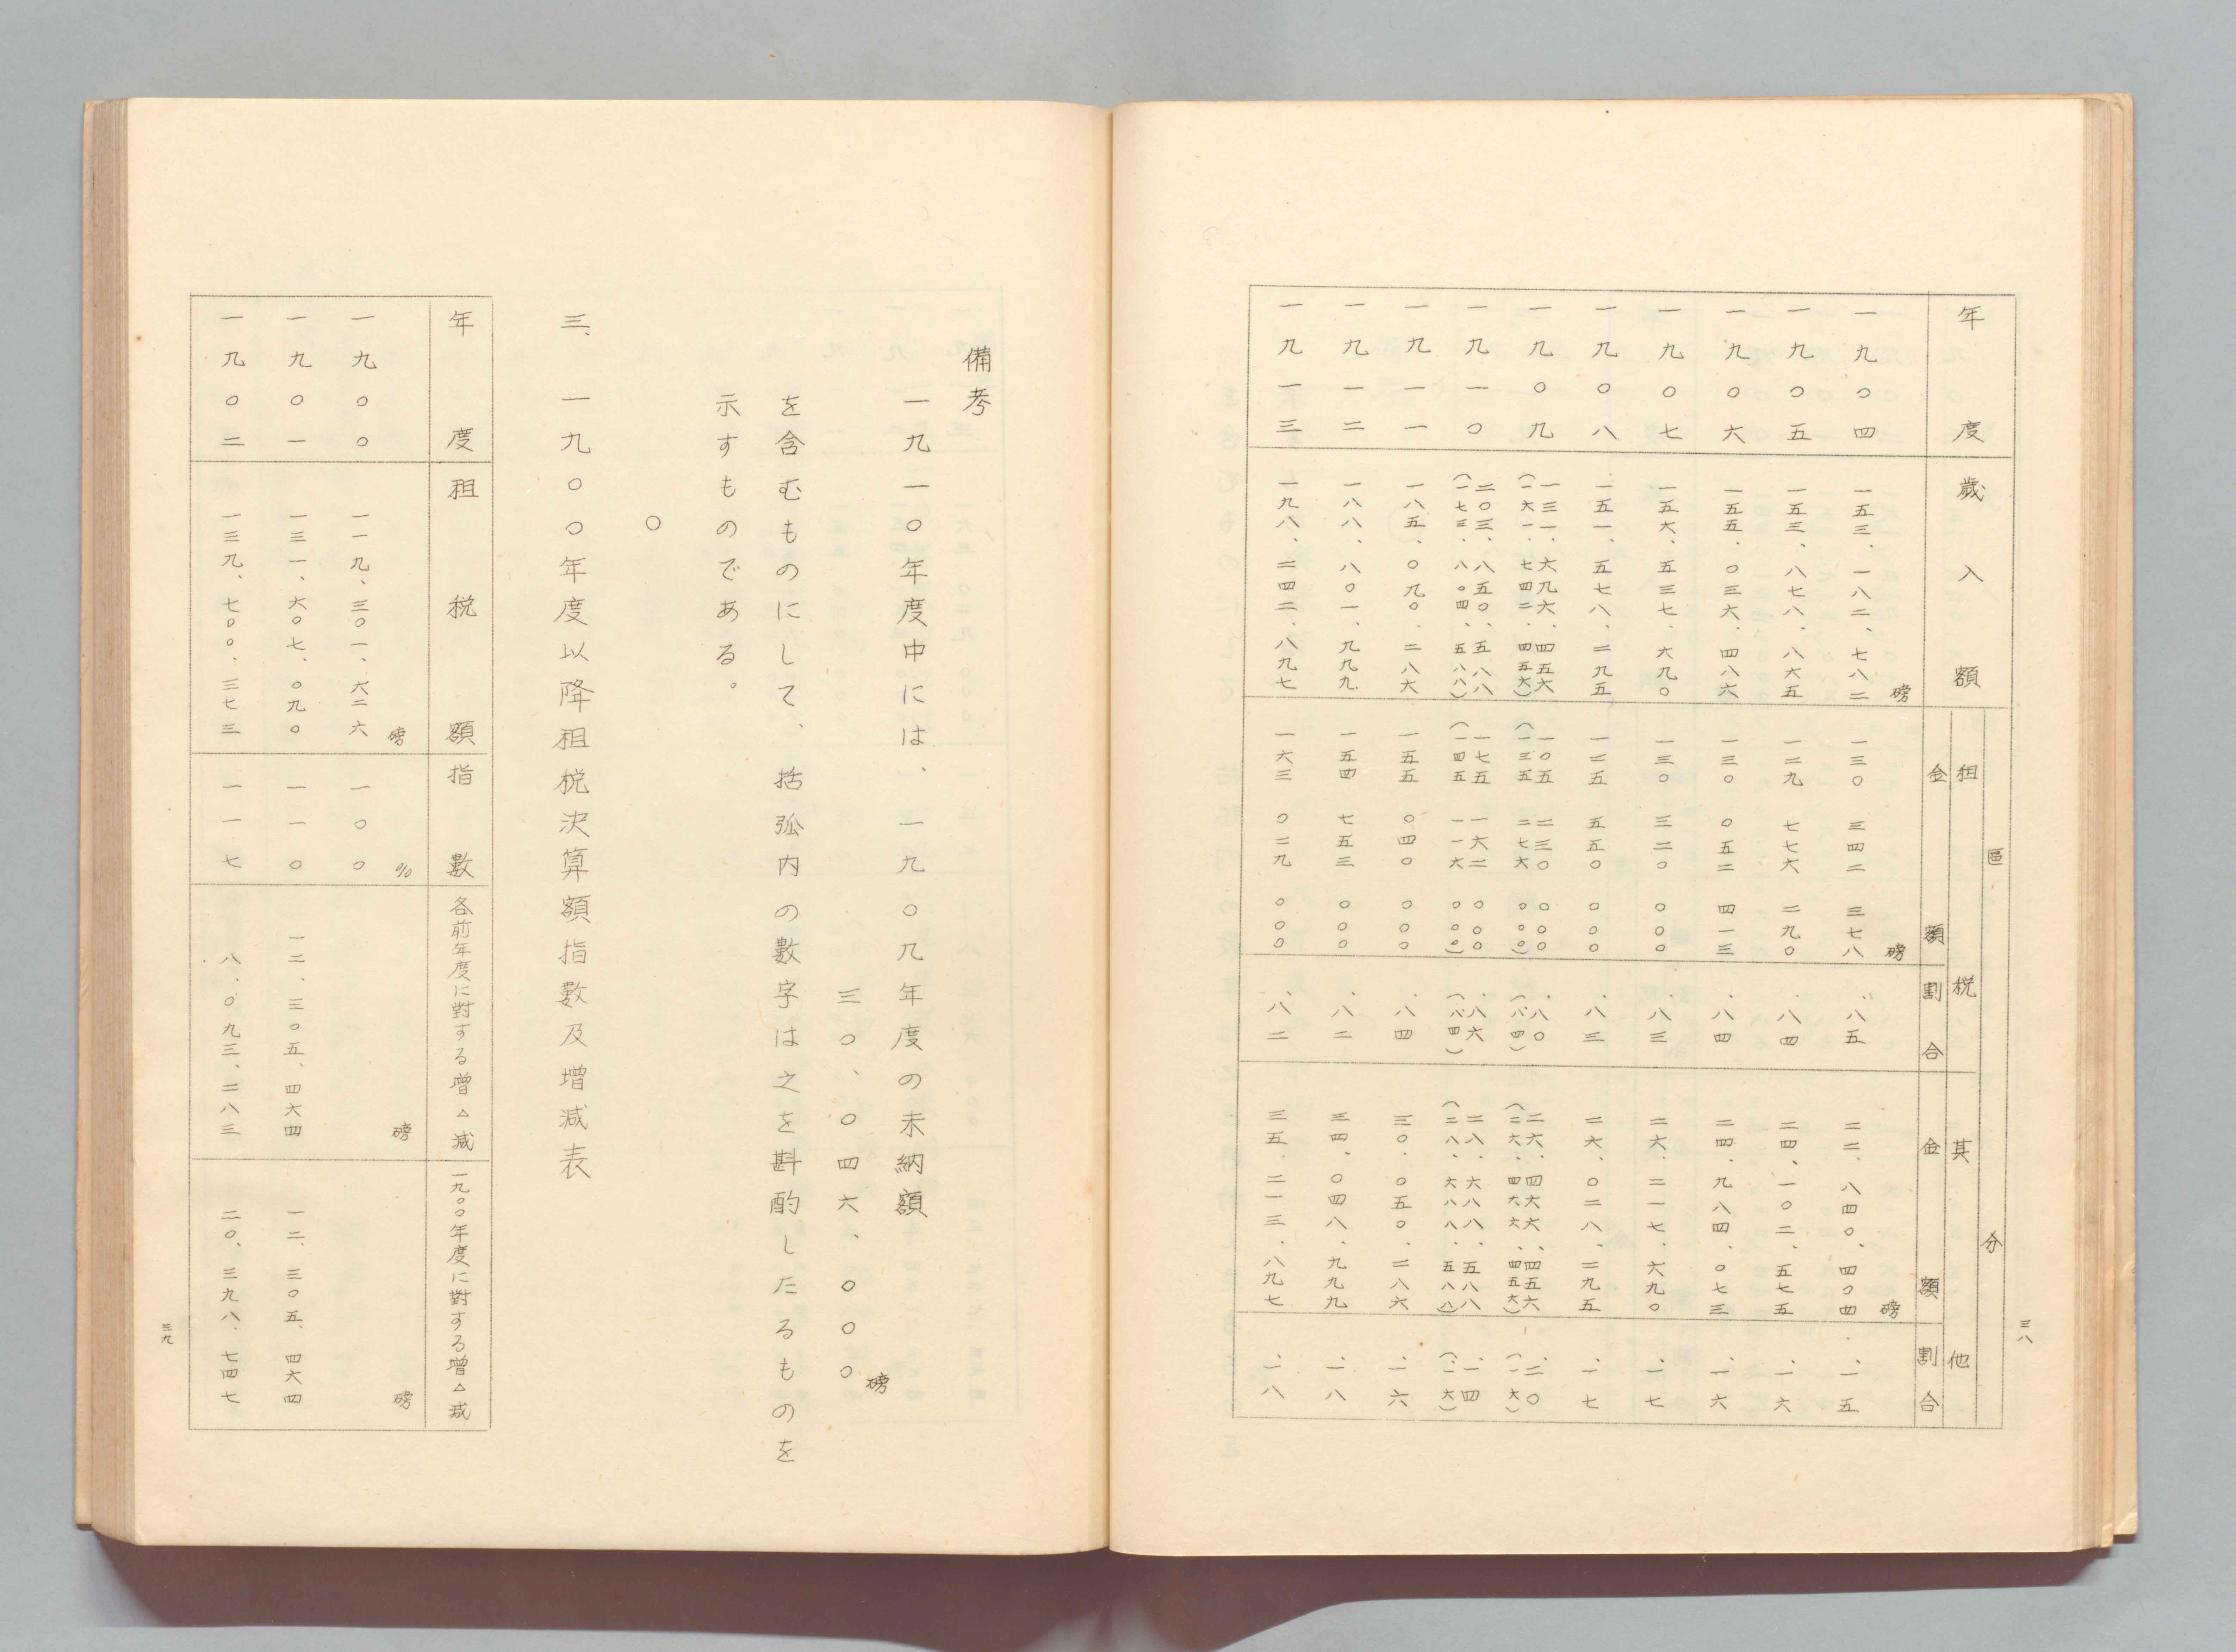 三八
年度 歳入額 區分
租税 其他
金額 割合 金額 割合
磅 磅 磅
一九〇四 一五三、一八二、七八二 一三〇 三四二 三七八 、八五 二二、八四〇、四〇四 、一五
一九〇五 一五三、八七八、八六五 一二九 七七六 二九〇 、八四 二四、一〇二、五七五 、一六
一九〇六 一五五、〇三六、四八六 一三〇 〇五二 四一三 、八四 二四、九八四、〇七三 、一六
一九〇七 一五六、五三七、六九〇 一三〇 三二〇 〇〇〇 、八三 二六、二一七、六九〇 、一七
一九〇八 一五一、五七八、二九五 一二五 五五〇 〇〇〇 、八三 二六、〇二八、二九五 、一七
一九〇九 一三一、六九六、四五六 一〇五 二三〇 〇〇〇 、八〇 二六、四六六、四五六 、二〇
(一六一、七四二、四五六) (一三五 二七六 〇〇〇) (、八四) (二六、四六六、四五六) (、一六)
一九一〇 二〇三、八五〇、五八八 一七五 一六二 〇〇〇 、八六 二八、六八八、五八八 、一四
(一七三、八〇四、五八八) (一四五 一一六 〇〇〇) (、八四) (二八、六八八、五八八) (、一六)
一九一一 一八五、〇九〇、二八六 一五五 〇四〇 〇〇〇 、八四 三〇、〇五〇、二八六 、一六
一九一二 一八八、八〇一、九九九 一五四 七五三 〇〇〇 、八二 三四、〇四八、九九九 、一八
一九一三 一九八、二四二、八九七 一六三 〇二九 〇〇〇 、八二 三五、二一三、八九七 、一八
備考
一九一〇年度中には、一九〇九年度の未納額
三〇、〇四六、〇〇〇磅
を含むものにして、括弧内の數字は之を斟酌したるものを
示すものである。
〇
三、一九〇〇年度以降租税決算額指數及増減表
年度 租税額 指數 各前年度に對する増△減 一九〇〇年度に對する増△減
磅 % 磅 磅
一九〇〇 一一九、三〇一、六二六 一〇〇
一九〇一 一三一、六〇七、〇九〇 一一〇 一二、三〇五、四六四 一二、三〇五、四六四
一九〇二 一三九、七〇〇、三七三 一一七 八、〇九三、二八三 二〇、三九八、七四七
三九